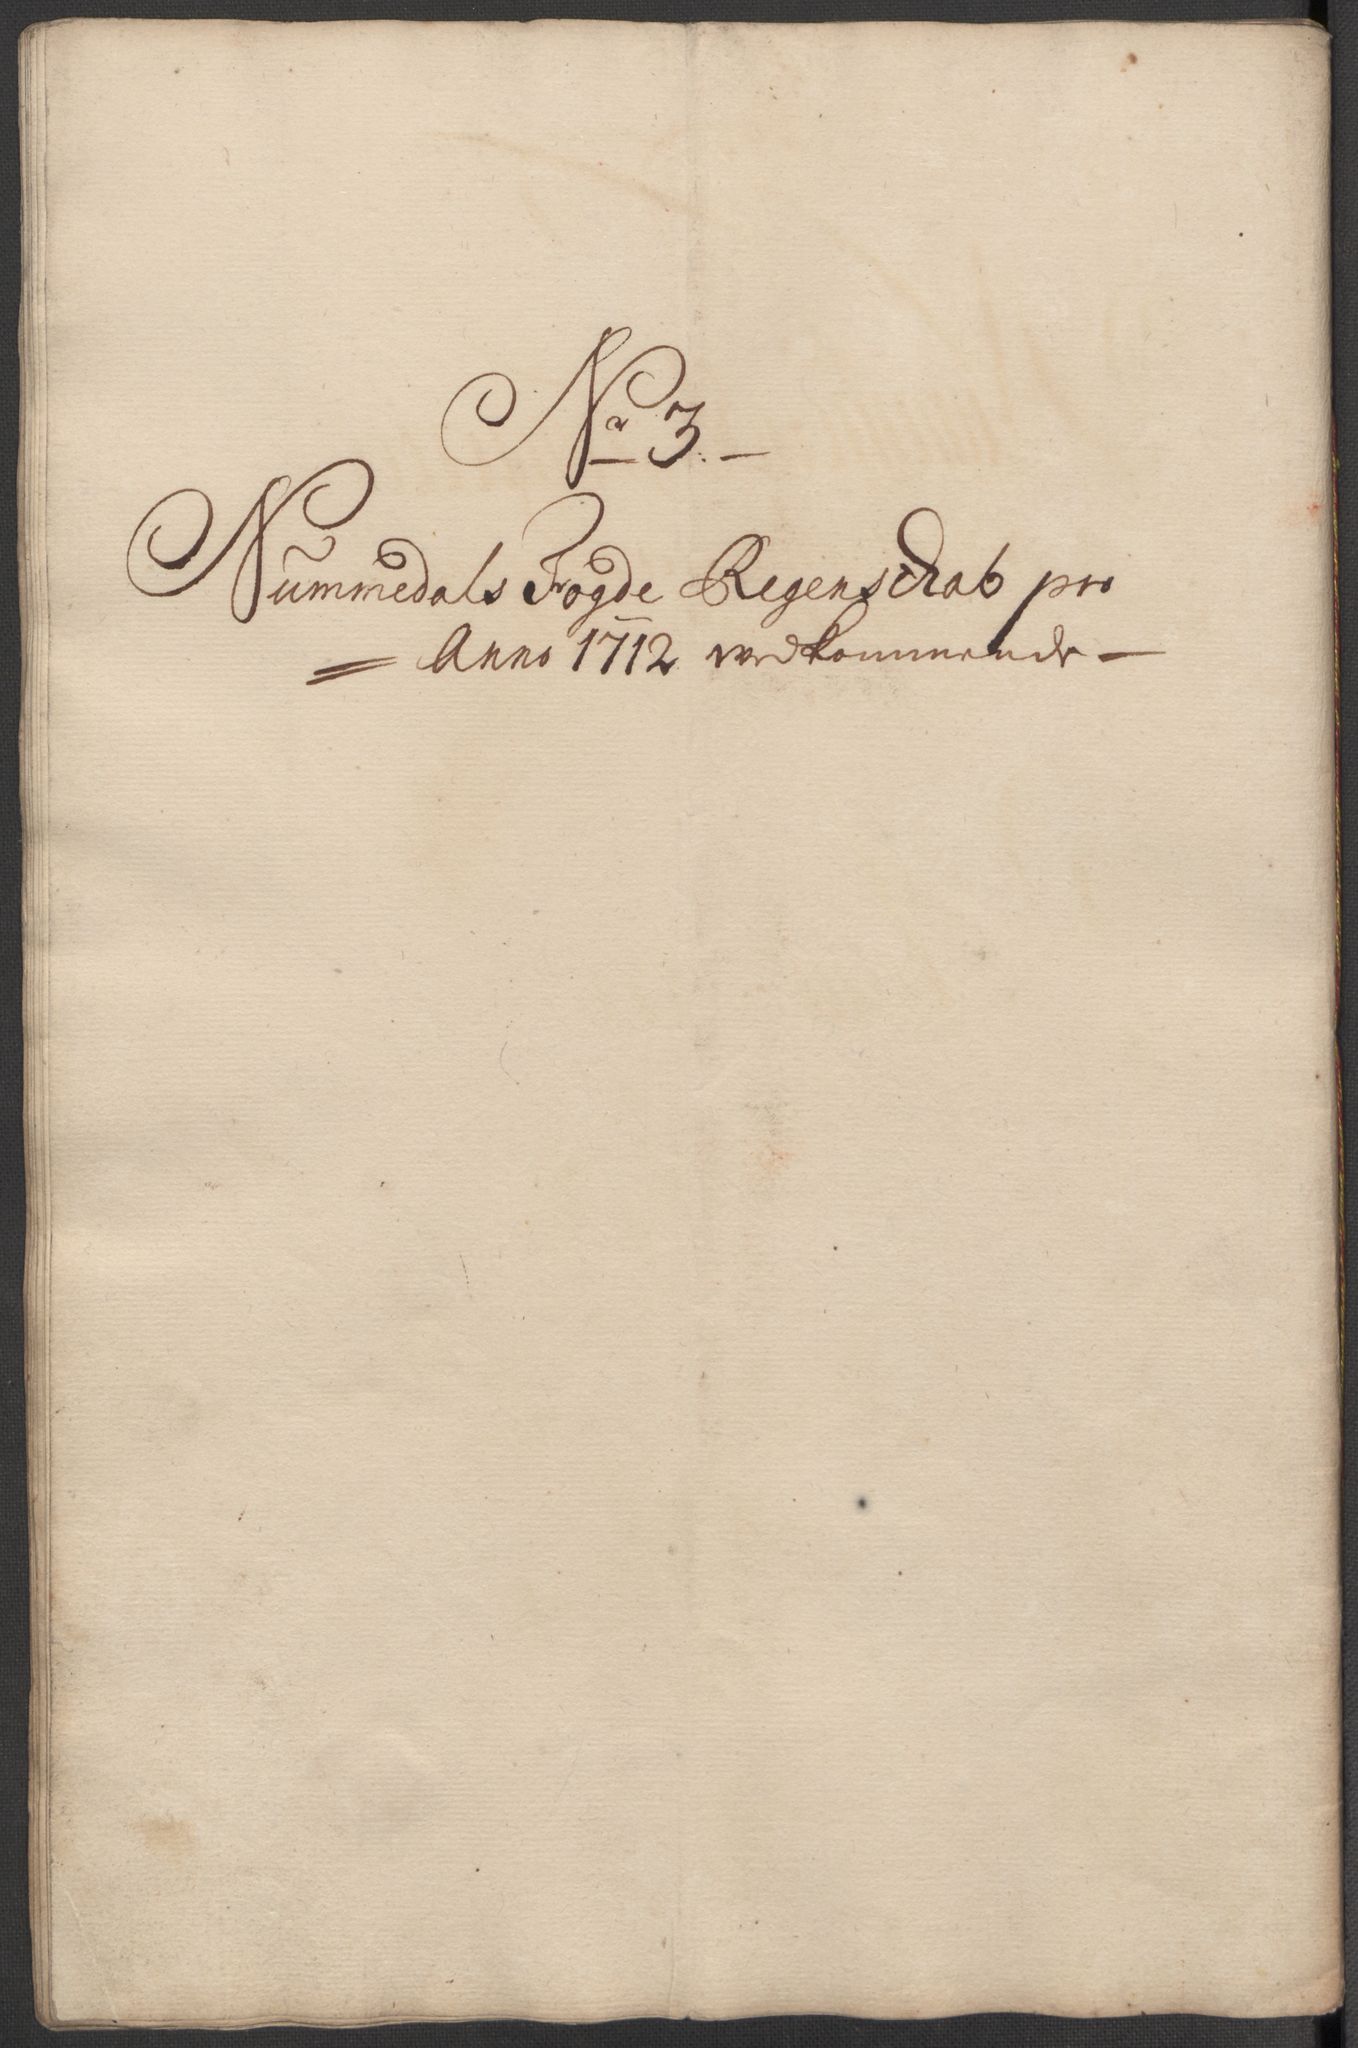 No 3.
Nummedals Fogde Regenschab pro
Anno 1712 vedkommende